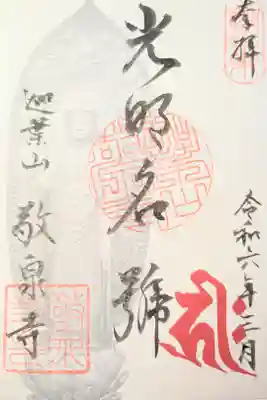 奉拝
令和六年二月
光明名號
迦葉山
敬泉寺